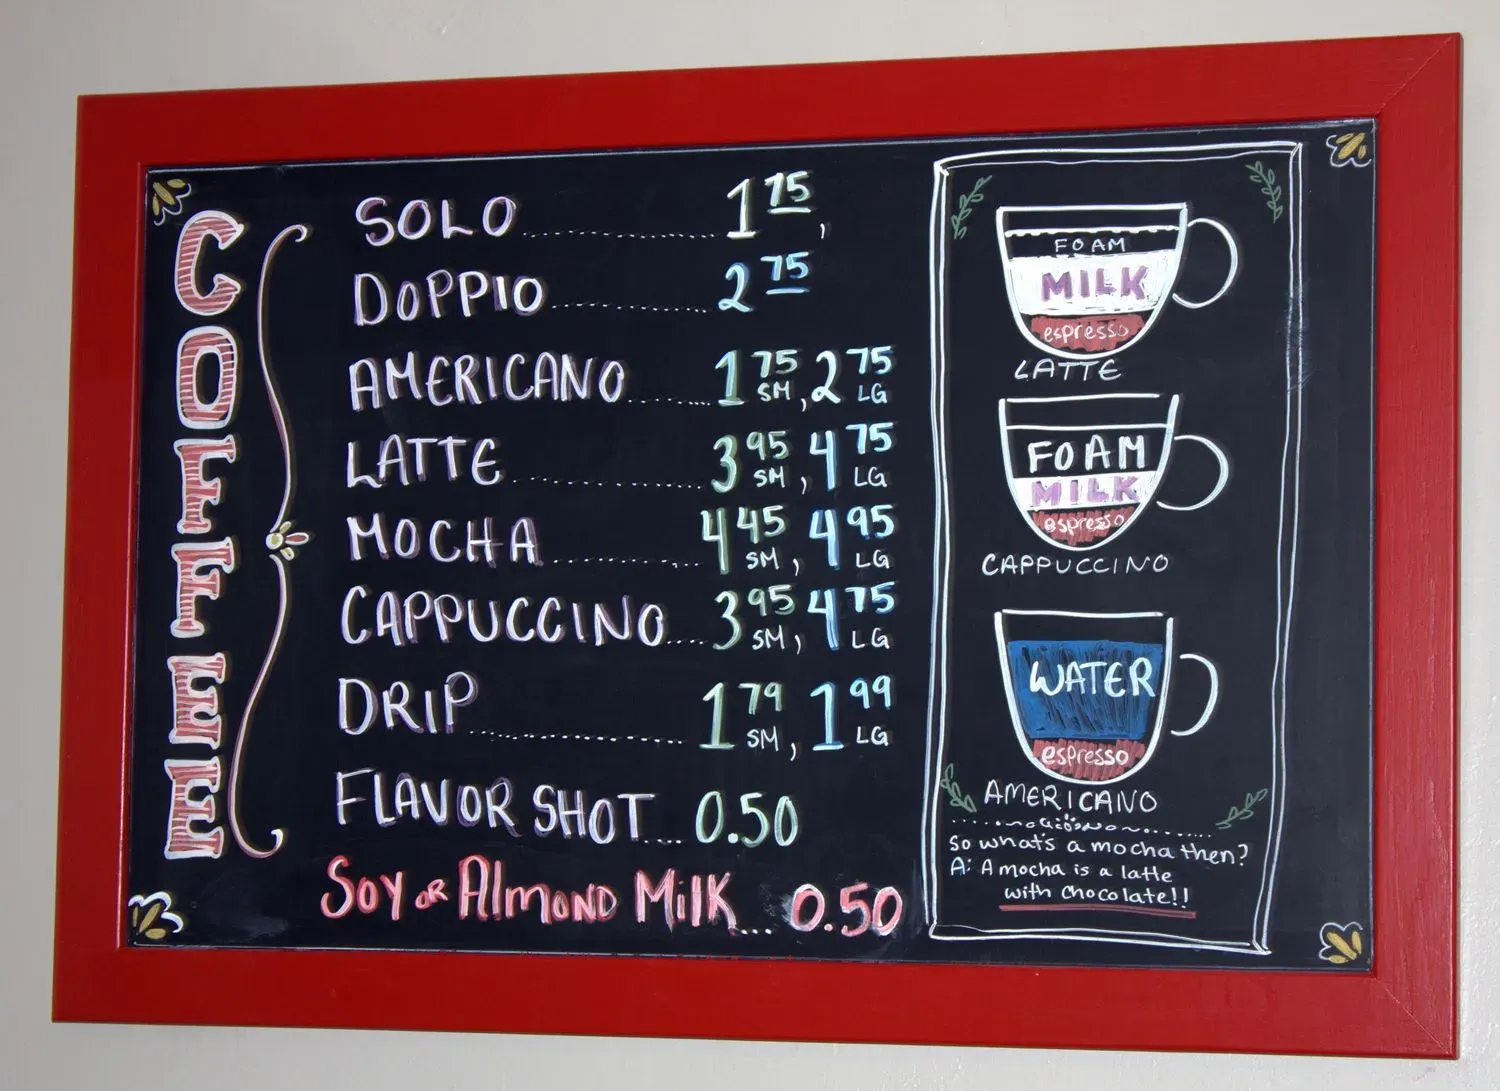 COFFEE
SOLO 1.75
DOPPIO 2.75
AMERICANO 1.75 SM, 2.75 LG
LATTE 3.95 SM, 4.75 LG
MOCHA 4.45 SM, 4.95 LG
CAPPUCCINO 3.95 SM, 4.75 LG
DRIP 1.79 SM, 1.99 LG
FLAVOR SHOT 0.50
SOY OR ALMOND MILK 0.50
FOAM
MILK
espresso
LATTE
FOAM
MILK
espresso
CAPPUCCINO
WATER
espresso
AMERICANO
So what's a mocha then?
A: A mocha is a latte
with chocolate!!